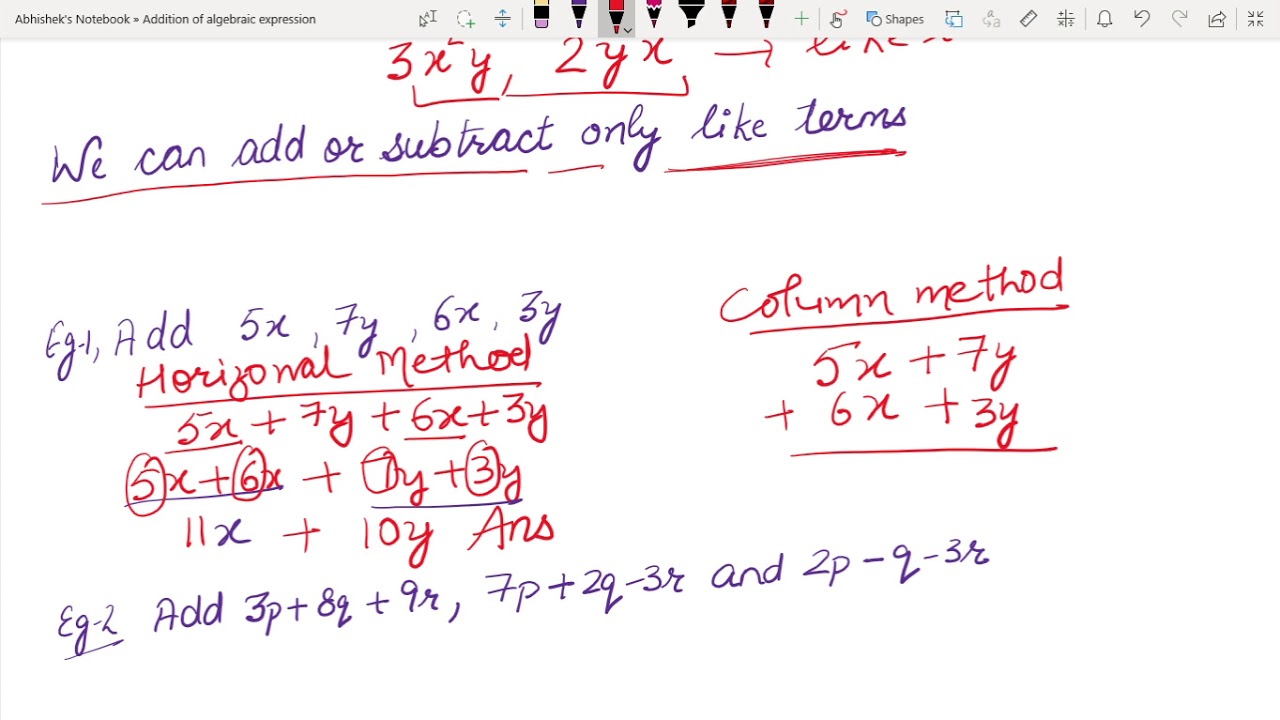 Abhishek's Notebook » Addition of algebraic expression
Shapes
3x²y, 2yx → like
We can add or subtract only like terms
Eg-1, Add 5x, 7y, 6x, 3y
Horizonal Method
5x + 7y + 6x + 3y
5x + 6x + 7y + 3y
11x + 10y Ans
Column method
5x + 7y
+ 6x + 3y
Eg-2 Add 3p + 8q + 9r, 7p + 2q - 3r and 2p - q - 3r